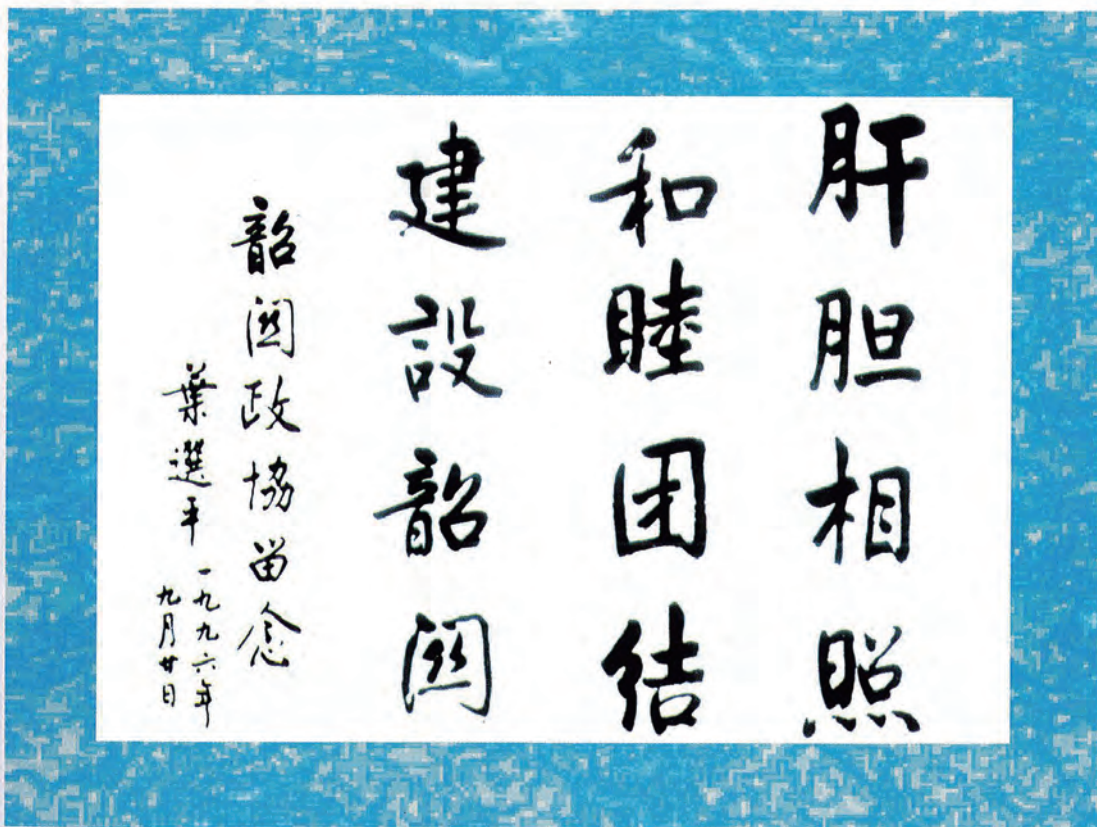 肝胆相照
和睦团结
建設韶関
韶関政協留念
葉選平
一九九六年
九月廿日